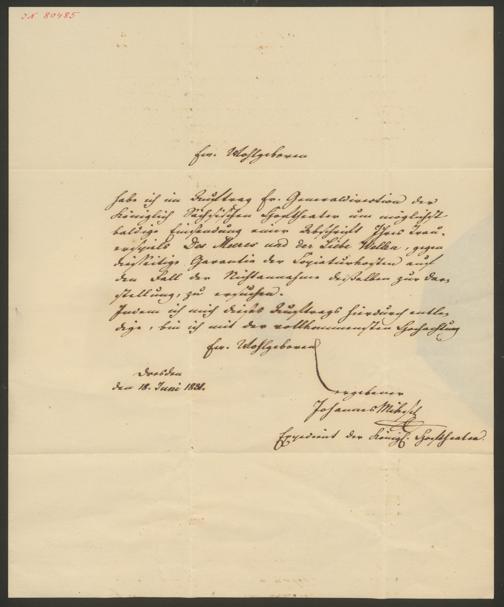 IN 80485
Ew. Wohlgeboren
habe ich im Auftrag Er. Generaldirection der
Königlich Sächsischen Hoftheater um möglichst
baldige Einsendung einer Abschrift Ihres Trau-
erspiels Des Meeres und der Liebe Wellen, gegen
diesseitige Garantie der Copiaturkosten auf
den Fall der Nichtannahme desselben zur Dar-
stellung, zu ersuchen.
Indem ich mich dieses Auftrags hierdurch entle-
dige, bin ich mit der vollkommensten Hochachtung
Ew. Wohlgeboren
Dresden
den 18. Juni 1831.
ergebener
Johannes
Expedient der Königl. Hoftheater.